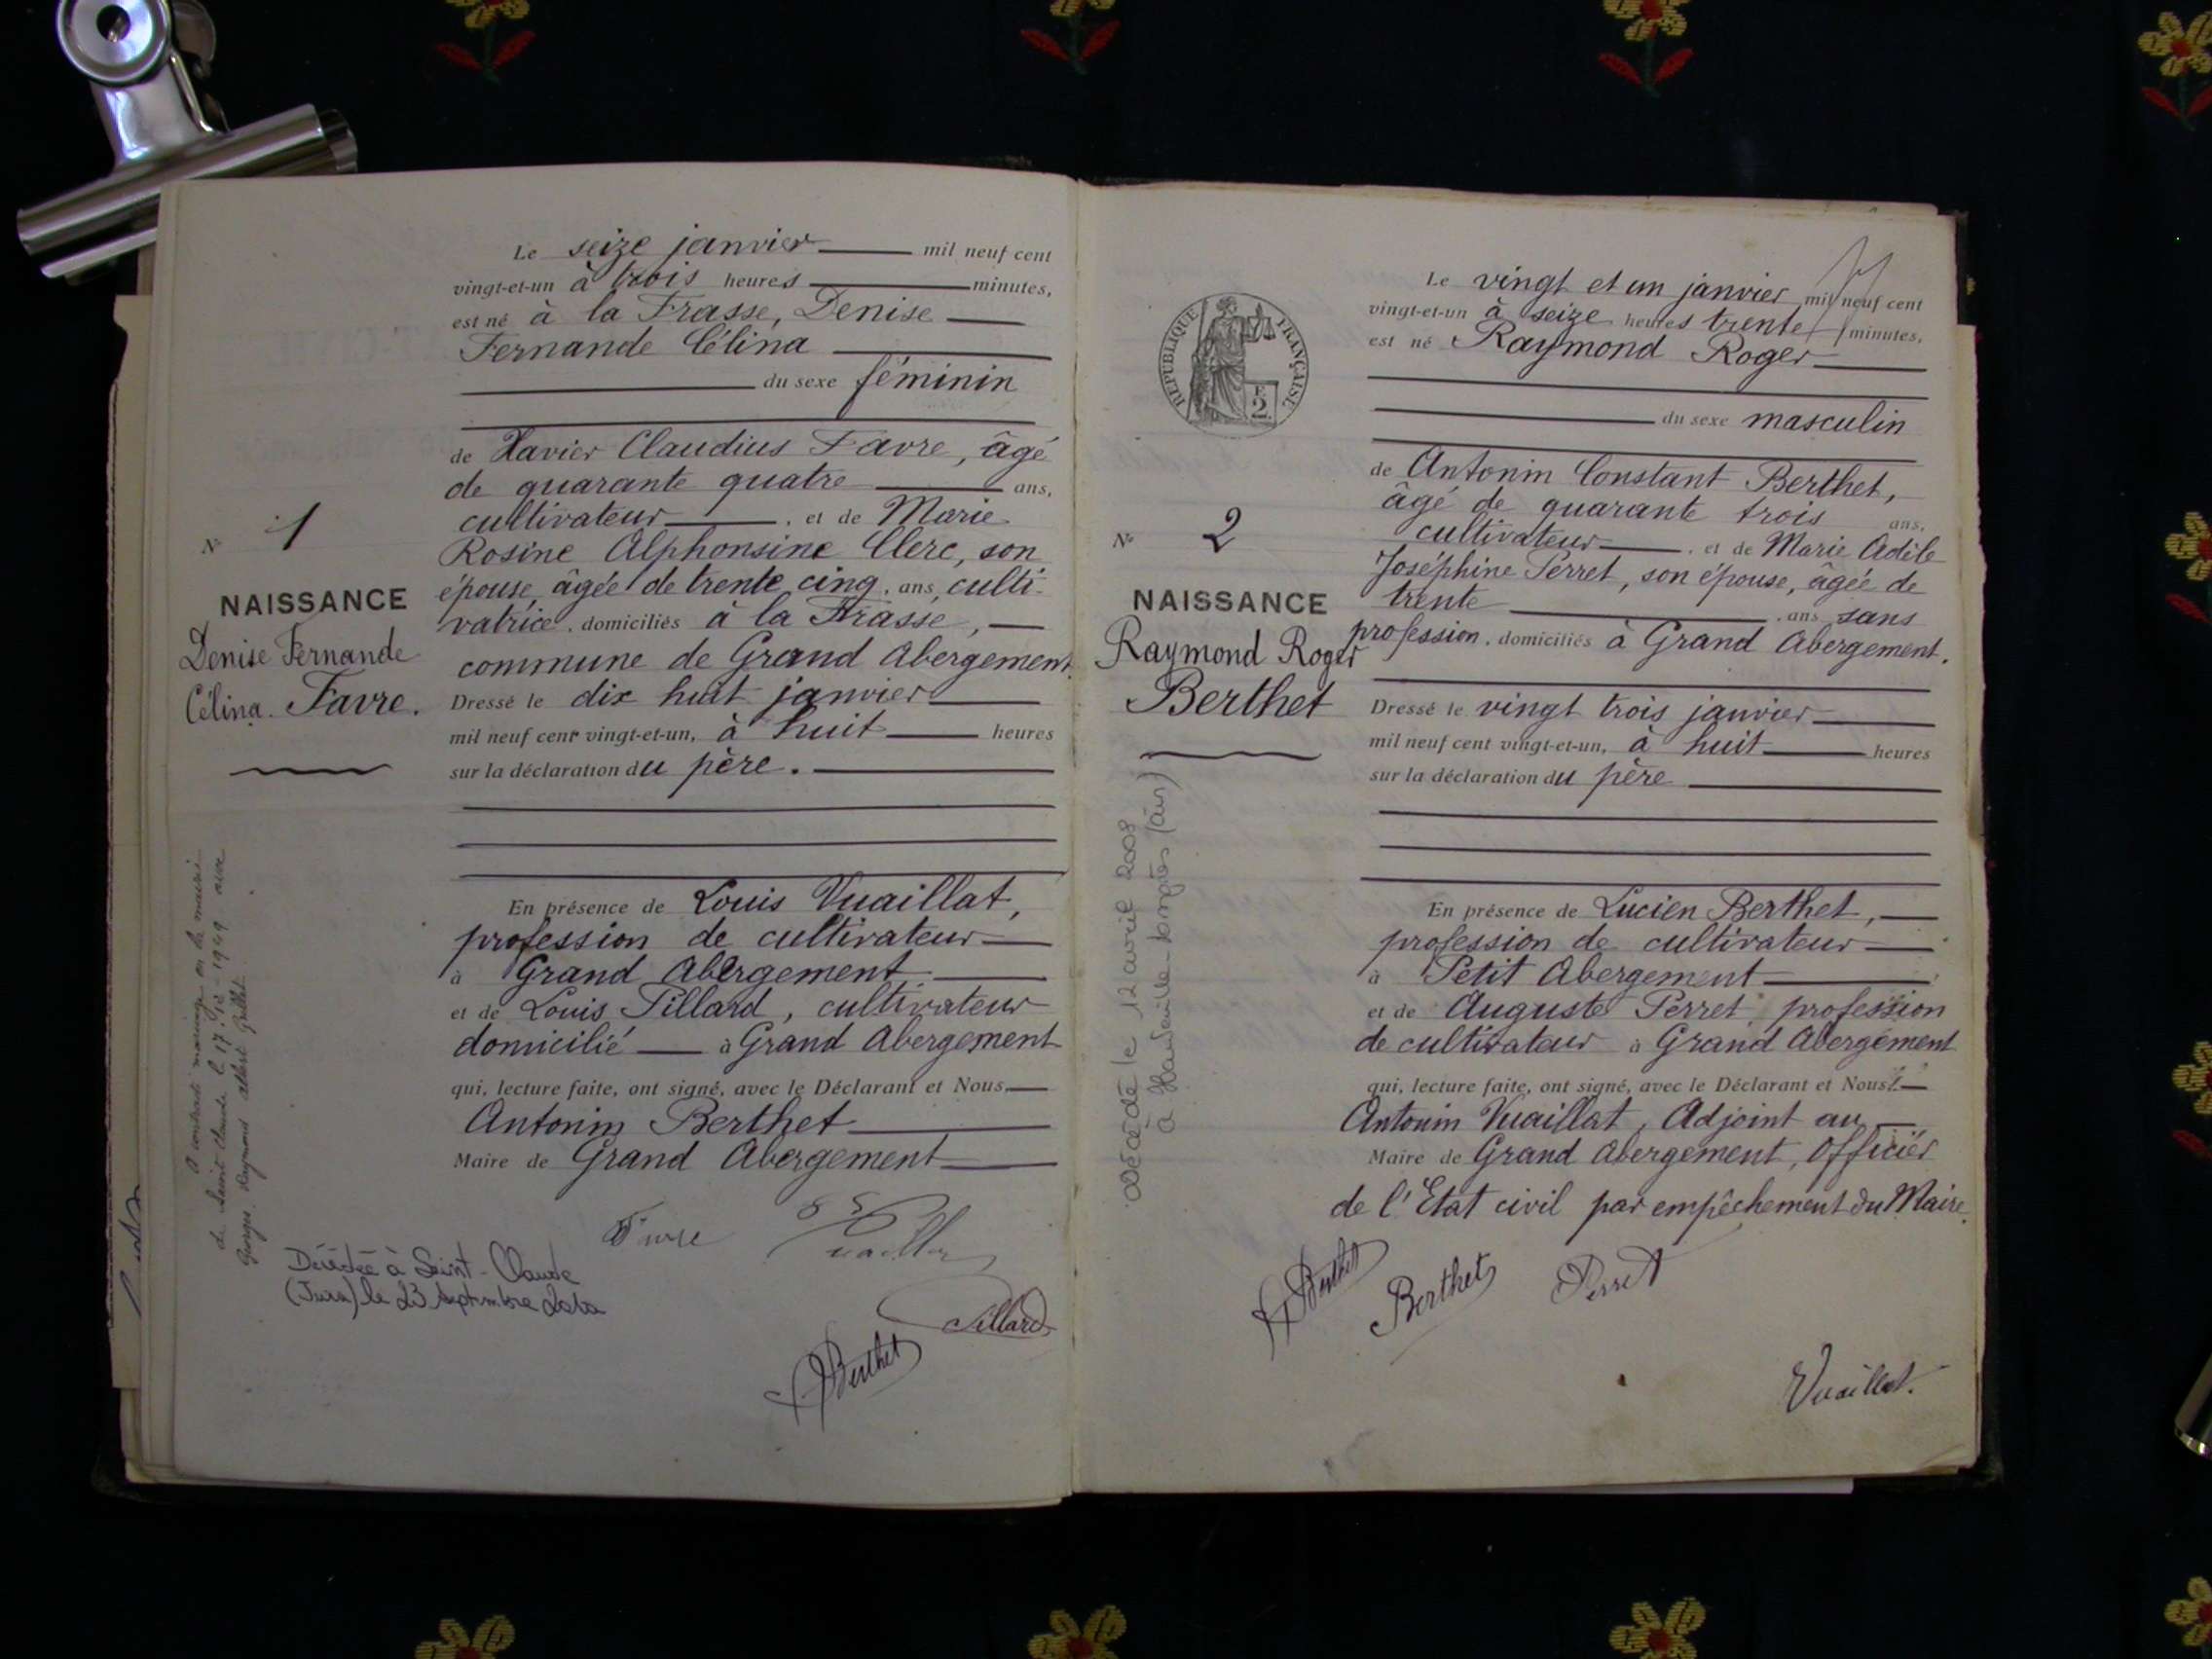 Le seize janvier mil neuf cent
vingt-et-un à trois heures minutes,
est né à la Frasse, Denise
Fernande Célina
du sexe féminin
de Xavier Claudius Favre, âgé
de quarante quatre ans,
cultivateur, et de Marie
Rosine Alphonsine Clerc, son
épouse, âgée de trente cinq, ans, culti-
vatrice, domiciliés à la Frasse,
commune de Grand Abergement.
Dressé le dix huit janvier
mil neuf cent vingt-et-un, à huit heures
sur la déclaration du père.
En présence de Louis Vuaillat,
profession de cultivateur
à Grand Abergement
et de Louis Tillard, cultivateur
domicilié à Grand Abergement
qui, lecture faite, ont signé, avec le Déclarant et Nous,
Antonin Berthet
Maire de Grand Abergement
Favre
Vuaillat
Tillard
Berthet
N° 1
NAISSANCE
Denise Fernande
Célina. Favre.
A contracté mariage en la mairie
de Saint Claude le 17-12-1949 avec
Georges Raymond Albert Grillet
Décédée à Saint-Claude
(Jura) le 23 septembre
REPUBLIQUE FRANÇAISE
2
N° 2
NAISSANCE
Raymond Roger
Berthet
Décédé le 12 avril 2008
à Hauteville-Lompnes (Ain)
Le vingt et un janvier mil neuf cent
vingt-et-un à seize heures trente minutes,
est né Raymond Roger
du sexe masculin
de Antonin Constant Berthet,
âgé de quarante trois ans,
cultivateur, et de Marie Adèle
Joséphine Perret, son épouse, âgée de
trente, ans, sans
profession, domiciliés à Grand Abergement.
Dressé le vingt trois janvier
mil neuf cent vingt-et-un, à huit heures
sur la déclaration du père
En présence de Lucien Berthet,
profession de cultivateur
à Petit Abergement
et de Auguste Perret profession
de cultivateur à Grand Abergement
qui, lecture faite, ont signé, avec le Déclarant et Nous,
Antonin Vuaillat, Adjoint au
Maire de Grand Abergement, Officier
de l'Etat civil par empêchement du Maire.
Berthet
Berthet
Perret
Vuaillat.